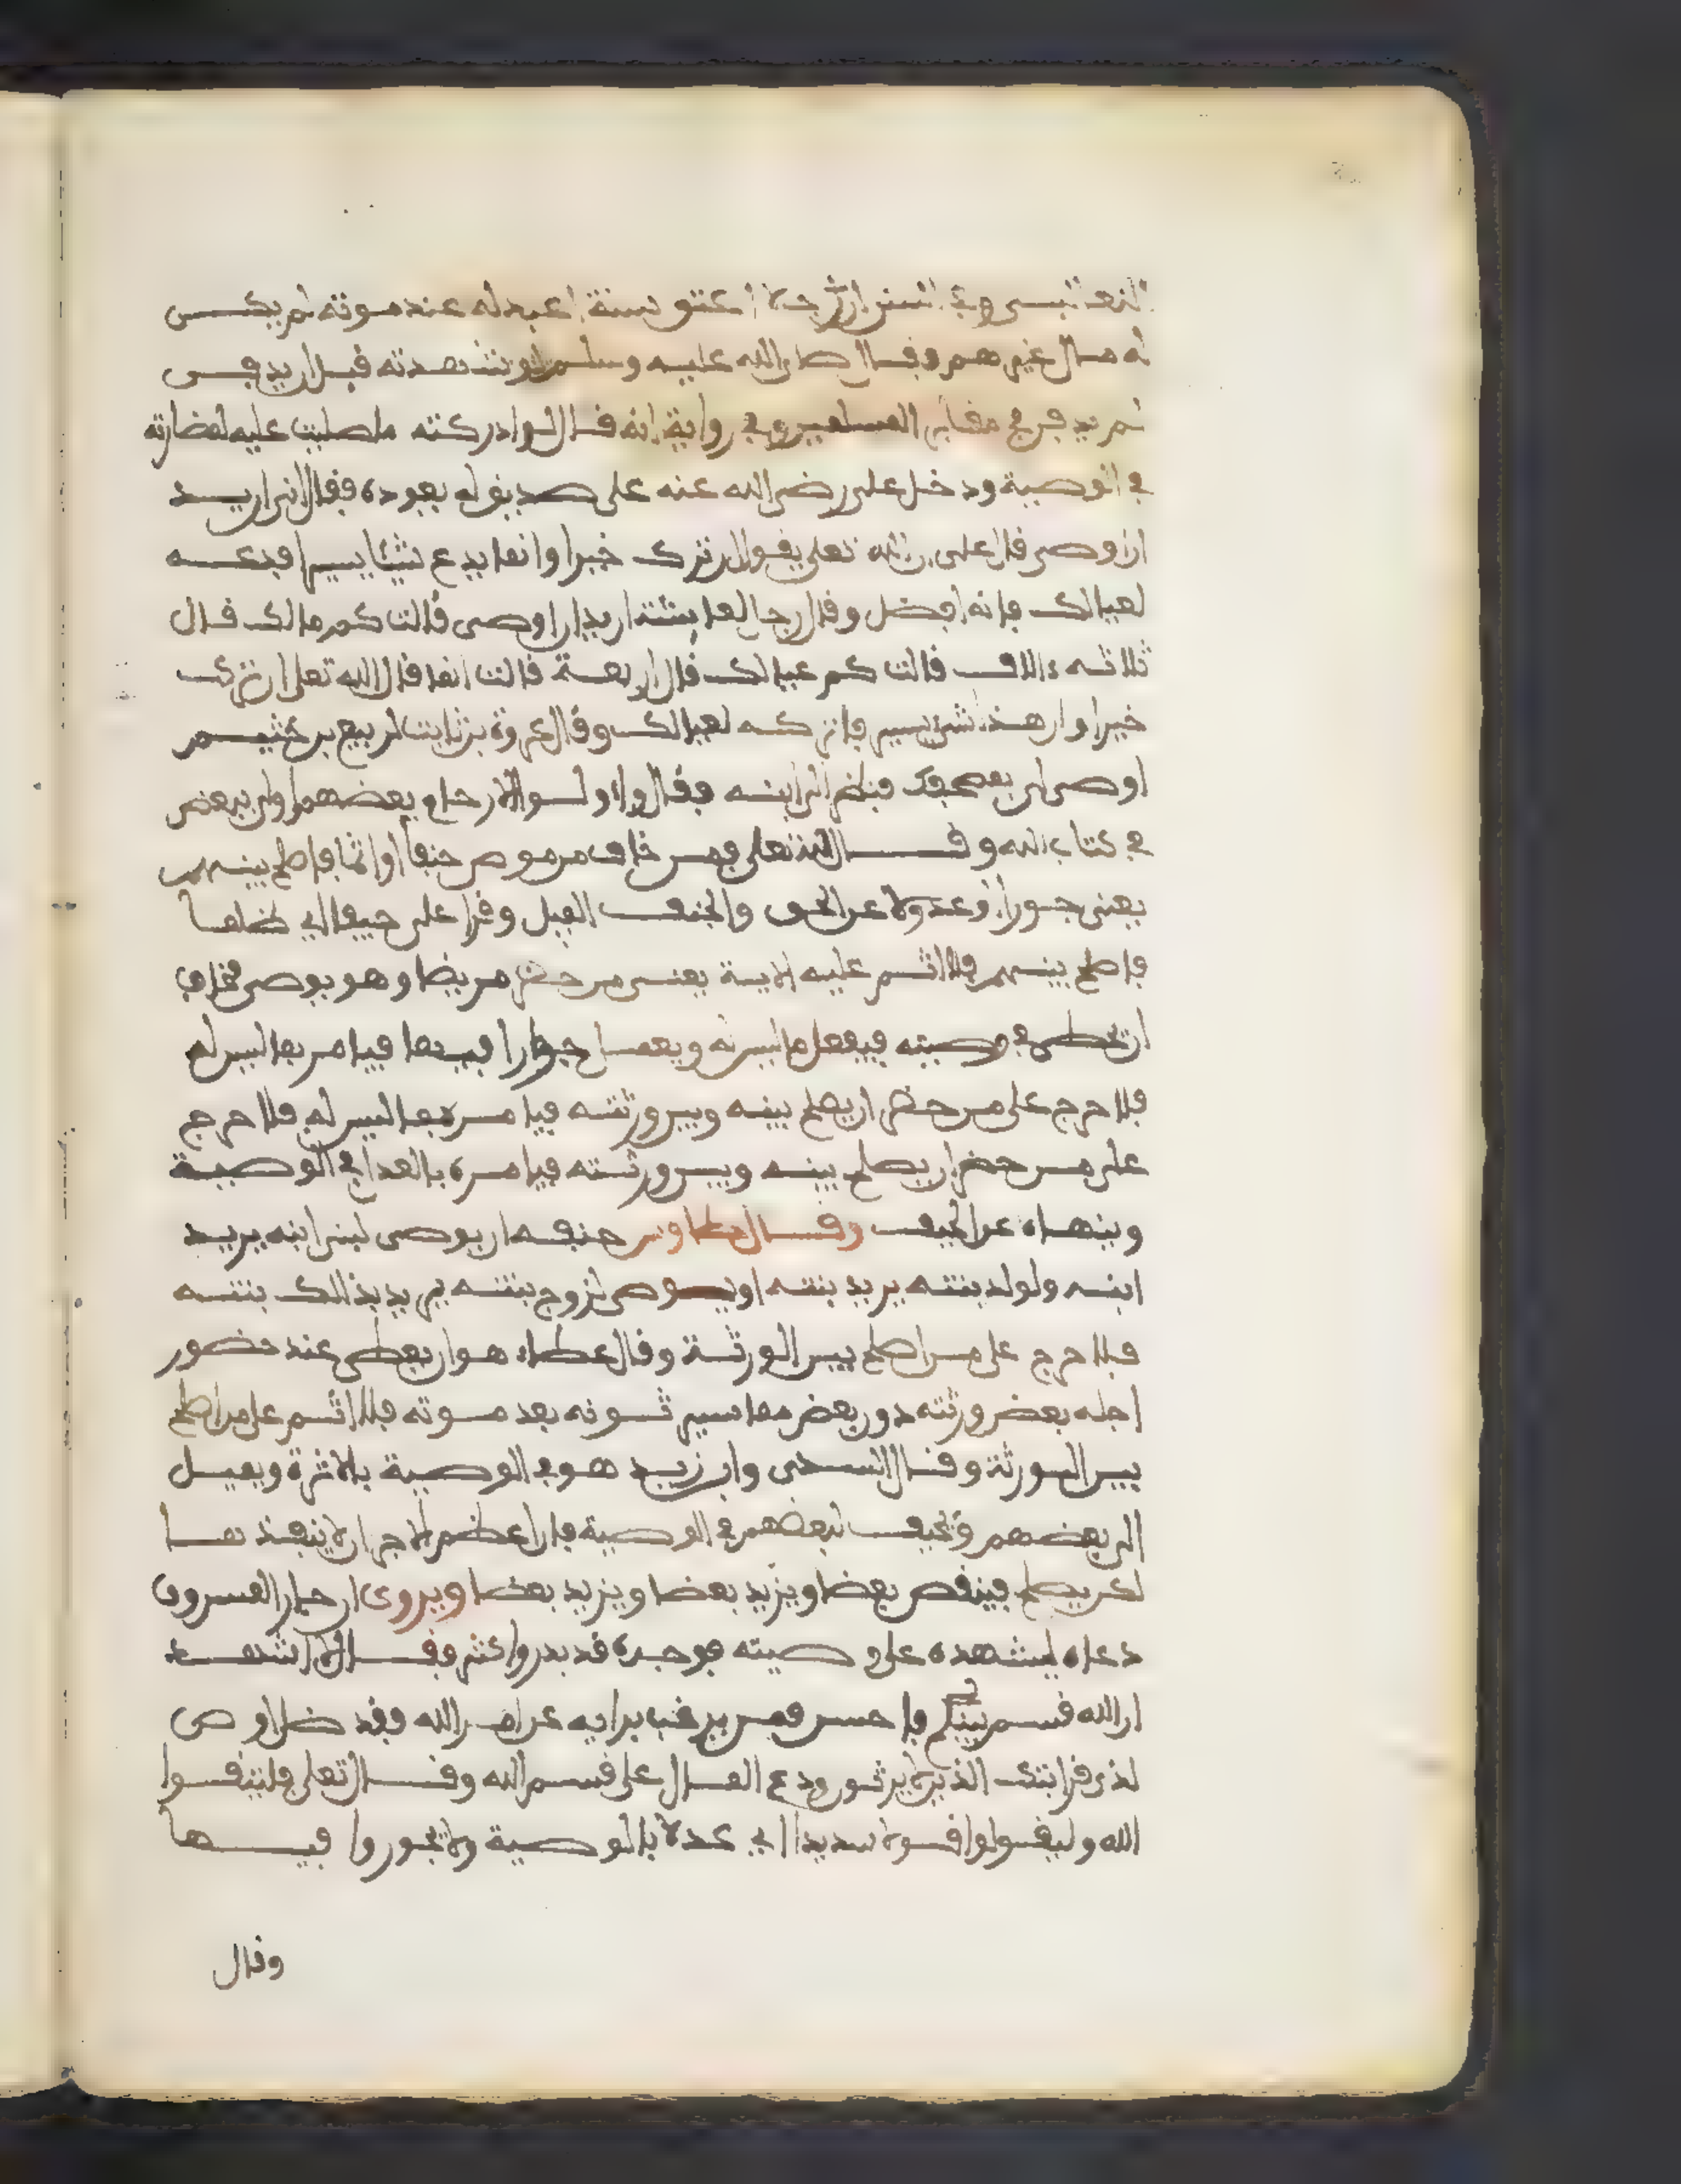 وفي السنن ان رجلا اعتق ستة اعبد له عند موته لم يكن
له مال غيرهم وقال صلى الله عليه وسلم لو شهدته قبل ان يدفن
لم يدفن في مقابر المسلمين وفي رواية انه قال لو ادركته ما صليت عليه لمضارته
في الوصية ودخل علي رضي الله عنه على صديق له يعوده فقال اني اريد
ان اوصي قال علي ان الله تعلى يقول ان ترك خيرا وانما يدع شيئا يسيرا فدعه
لعيالك فانه افضل وقال رجل لعائشة اريد ان اوصي قالت كم مالك قال
ثلاثه ءالاف قالت كم عيالك قال اربعة قالت انما قال الله تعلى ان ترك
خيرا وان هذا شيء يسير فاتركه لعيالك وقال عروة بن ثابت للربيع بن خثيم
اوصي لي بمصحفك فنظر الى ابنه فقال واولوا الارحام بعضهم اولى ببعض
في كتاب الله وقال الله تعلى فمن خاف من موص جنفا او اثما فاصلح بينهم
يعني جورا وعدولا عن الحق والجنف الميل وقرا علي حيفا اي ظلما
فاصلح بينهم فلا اثم عليه الاية يعني من حضر مريضا وهو يوصي فخاف
ان يخطى في وصيته فيفعل ما ليس له ويعمل جورا فيها فيامر بما ليس له
فلا حرج على من حضر ان يصلح بينه وبين ورثته فيامره بما ليس له فلا حرج
على من حضر ان يصلح بينه وبين ورثته فيامره بالعدل في الوصية
وينهاه عن الحيف وقال طاوس جنفه ان يوصى لبني ابنه يريد
ابنه ولولد بنته يريد بنته او يوصى لزوج بنته يريد بذالك بنته
فلا حرج على من اصلح بين الورثة وقال عطاء هو ان يعطى عند حضور
اجله بعض ورثته دون بعض مما سيرثونه بعد موته فلا اثم على من اصلح
بين الورثة وقال السدى وابن زيد هو في الوصية بالاثرة ويميل
الى بعضهم ويحيف لبعضهم في الوصية فان اعظم الاجر ان لا ينفذها
لكن يصلح فينقص بعضا ويزيد بعضا ويزيد بعضا ويروى ان جارا لمسروق
دعاه ليشهده على وصيته فوجده قد بذر واكثر فقال لا اشهد
ان الله قسم بينكم فاحسن فمن يرغب برايه عن امر الله فقد ضل اوص
لذى قرابتك الذين لا يرثون ودع المال على قسم الله وقال تعلى فليتقوا
الله وليقولوا قولا سديدا اي عدلا بالوصية ولا يجوروا فيها
وقال